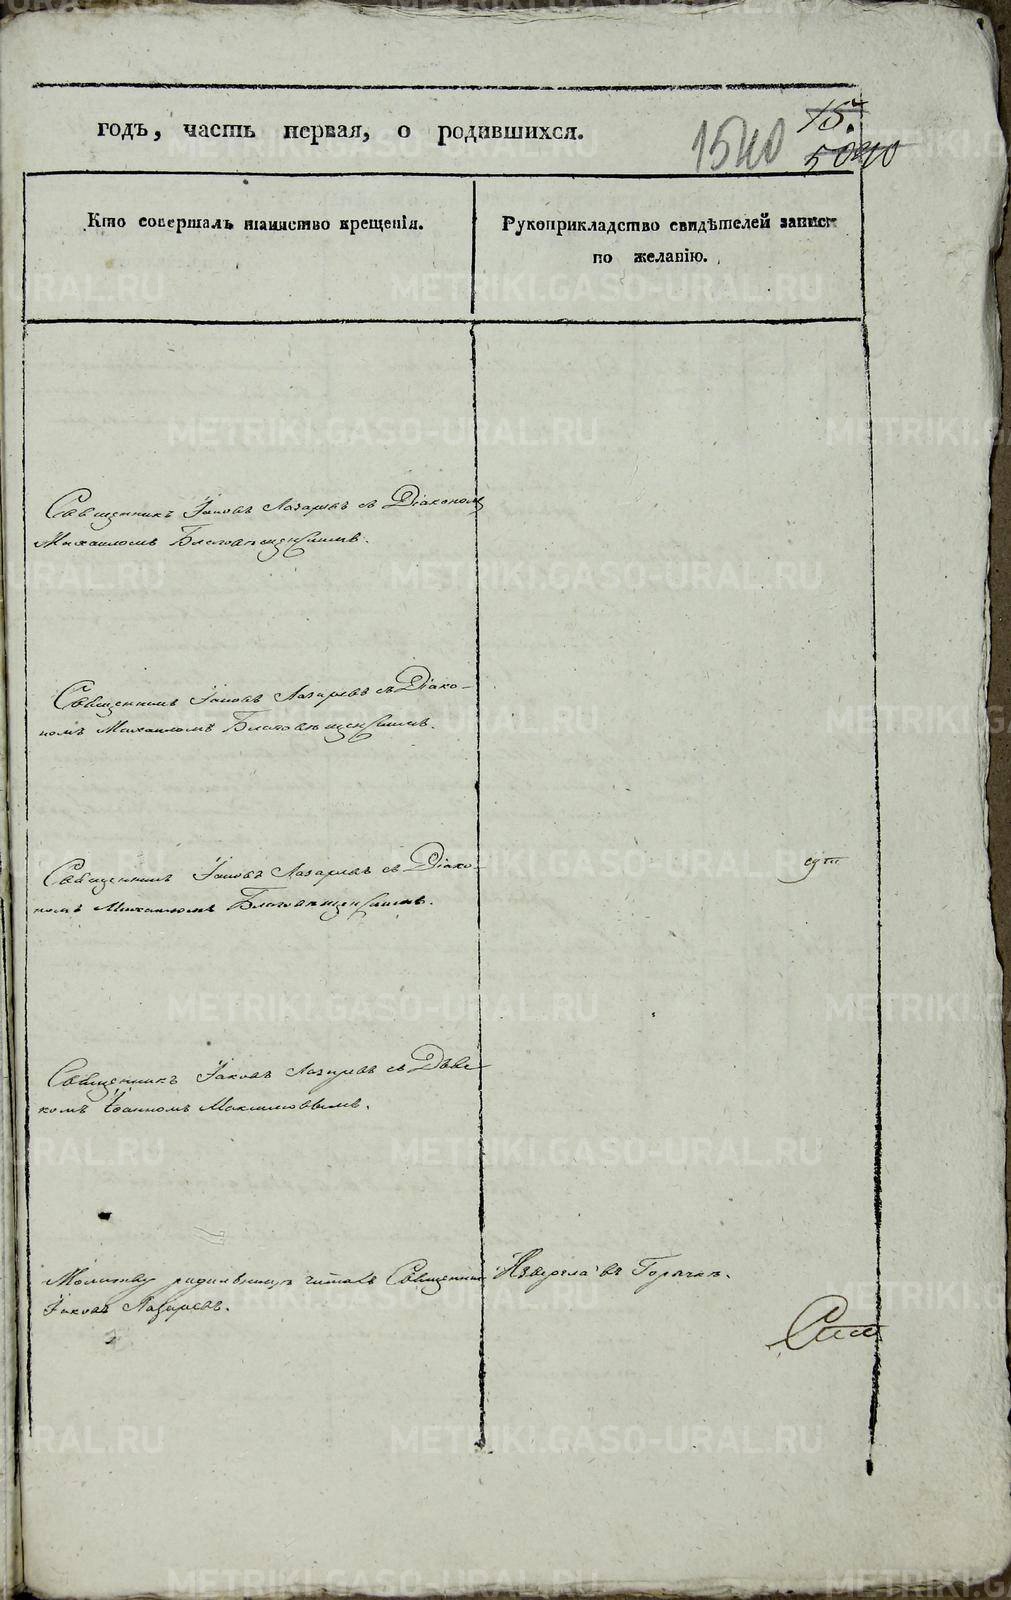 годъ, часть первая, о родившихся.
15.
1540
5040
Кто совершалъ таинство крещенія.
Рукоприкладство свидѣтелей записи
по желанію.
Священникъ Іаковъ Лазаревъ съ Діакономъ
Михаиломъ Благовѣщенскимъ.
Священникъ Іаковъ Лазаревъ съ Діако-
номъ Михаиломъ Благовѣщенскимъ.
Священникъ Іаковъ Лазаревъ съ Діако-
номъ Михаиломъ Благовѣщенскимъ.
Священникъ Іаковъ Лазаревъ съ Дьяч-
комъ Іоанномъ Максимовымъ.
Молитву родильницѣ читалъ Священник
Іаковъ Лазаревъ.
METRIKI.GASO-URAL.RU